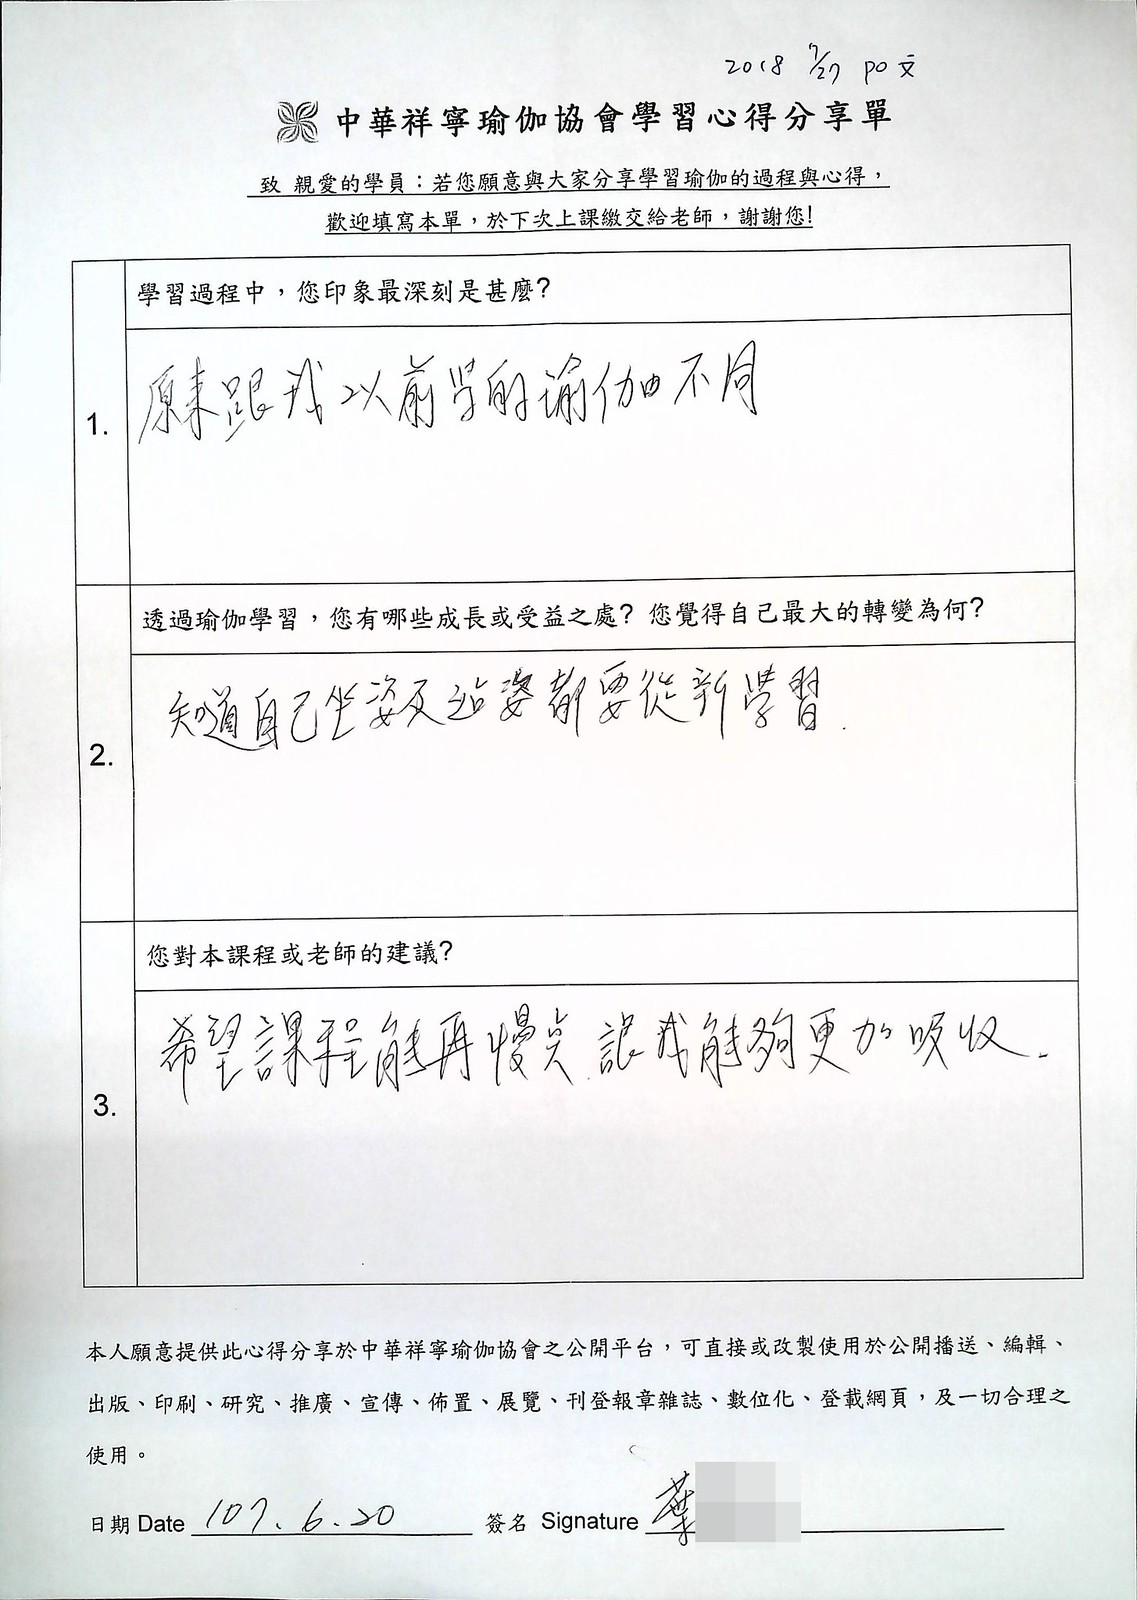 2018 7/27 po文
中華祥寧瑜伽協會學習心得分享單
致 親愛的學員：若您願意與大家分享學習瑜伽的過程與心得，
歡迎填寫本單，於下次上課繳交給老師，謝謝您!
學習過程中，您印象最深刻是甚麼?
1.
原來跟我以前学的瑜伽不同
透過瑜伽學習，您有哪些成長或受益之處? 您覺得自己最大的轉變為何?
2.
知道自己坐姿及站姿都要從新學習.
您對本課程或老師的建議?
3.
希望課程能再慢点.讓我能夠更加吸收.
本人願意提供此心得分享於中華祥寧瑜伽協會之公開平台，可直接或改製使用於公開播送、編輯、
出版、印刷、研究、推廣、宣傳、佈置、展覽、刊登報章雜誌、數位化、登載網頁，及一切合理之
使用。
日期 Date 107.6.20 簽名 Signature 葉